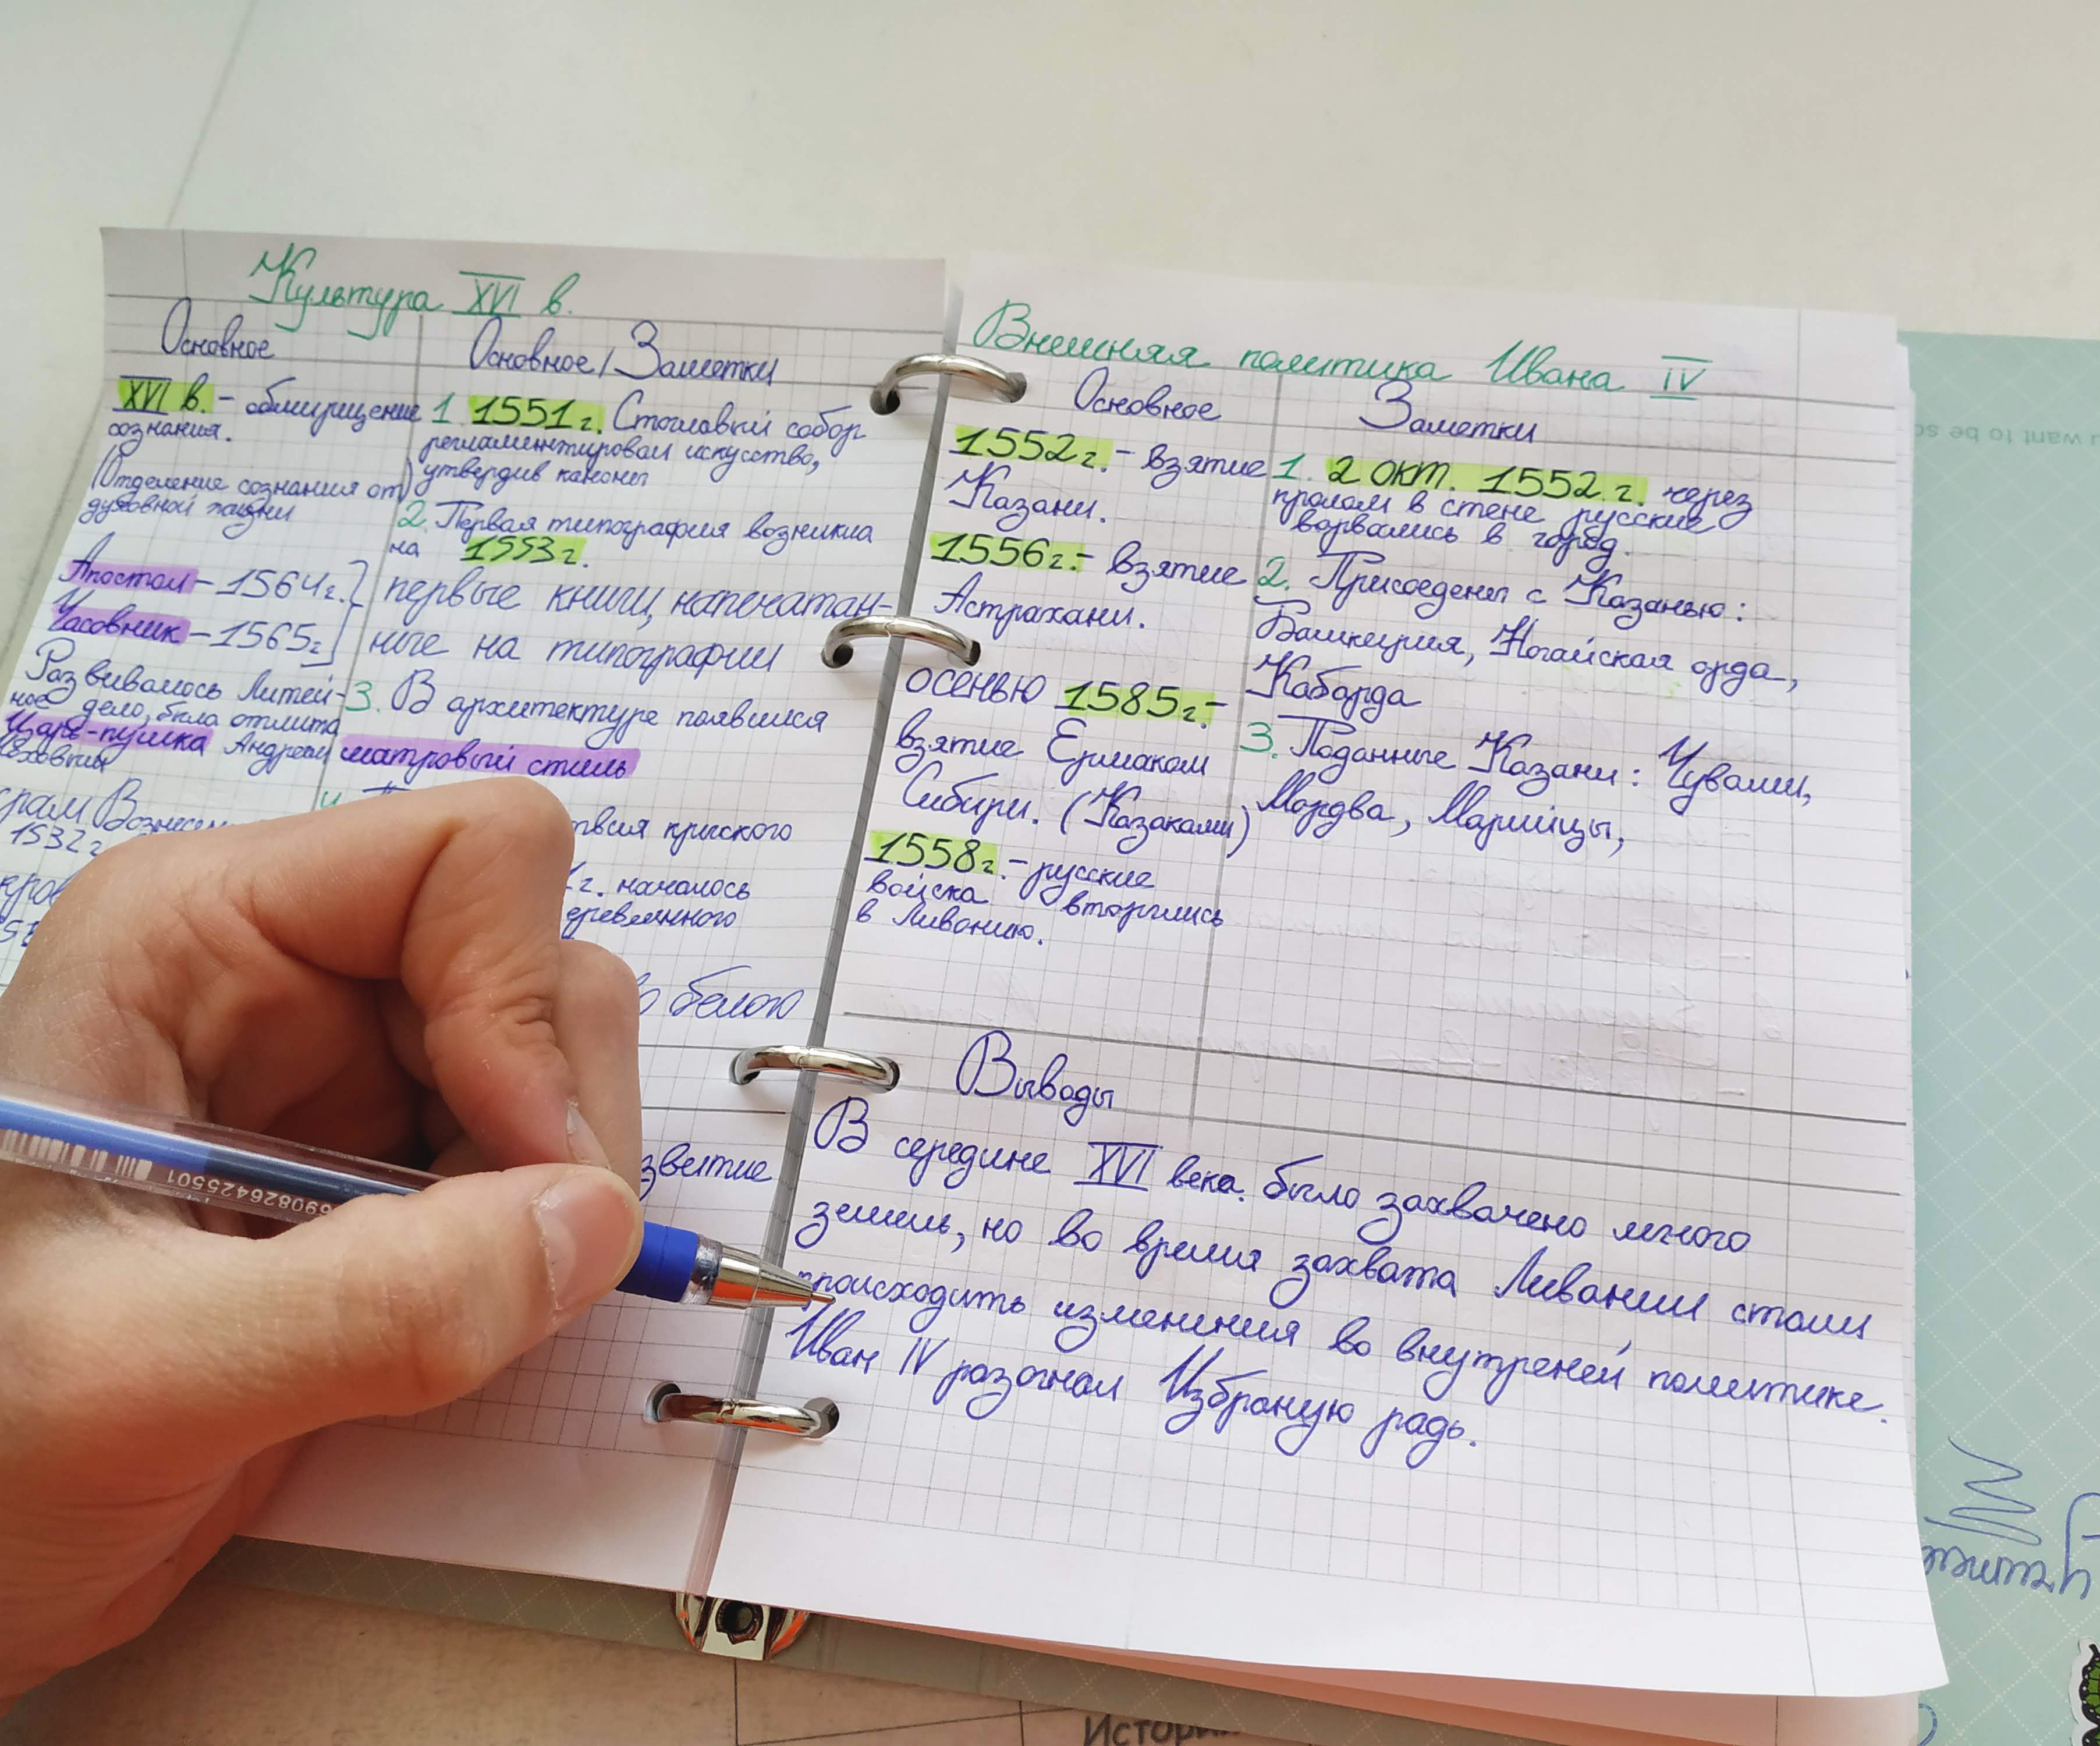 Культура XVI в.
Основное
Основное/Заметки
XVI в. - обмирщение
сознания.
(Отделение сознания от)
духовной жизни
Апостол - 1564г.
Часовник - 1565г
Развивалось Литей-
ное дело, была отлита
Царь-пушка Андреем
Чоховым
храм Вознесен
1532г
1. 1551г. Стоглавый собор
регламинтировал искусство,
утвердив каноны
2. Первая типография возникла
на 1553г.
первые книги, напечатан-
ные на типографии
3. В архитектуре появился
шатровый стиль
4.
ствия крыского
1г. началось
деревянного
белого
звитие
Внешняя политика Ивана IV
Основное
Заметки
1552г. - взятие
Казани.
1556г. - взятие
Астрахани.
осенью 1585г. -
взятие Ермаком
Сибири. (Казаками)
1558г. - русские
войска вторглись
в Ливонию.
1. 2 окт. 1552 г. через
пролом в стене русские
ворвались в город.
2. Присоедены с Казанью:
Башкирия, Ногайская орда,
Кабарда
3. Поданные Казани: Чуваши,
Мордва, Марийцы,
Выводы
В середине XVI века. было захвачено много
земель, но во время захвата Ливонии стали
происходить изменения во внутреней политике.
Иван IV разогнал Избраную радь.
690826425501
u want to be so
Истори